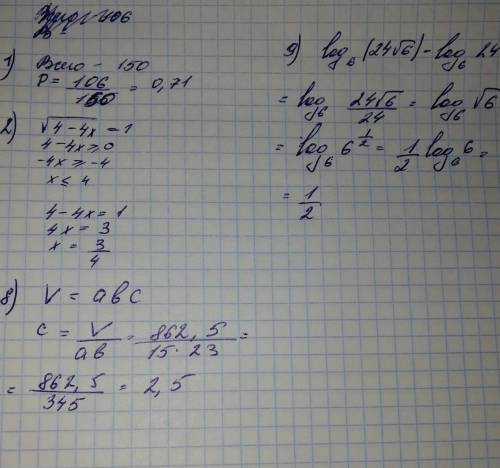 1) Всего - 150
P = 106/150 = 0,71
2) √(4-4x) = 1
4-4x ≥ 0
-4x ≥ -4
x ≤ 4
4-4x = 1
4x = 3
x = 3/4
8) V = abc
c = V/ab = 862,5/15·23 =
= 862,5/345 = 2,5
9) log₆(24√6) - log₆ 24
= log₆ 24√6/24 = log₆ √6
= log₆ 6^(1/2) = 1/2 log₆ 6 =
= 1/2